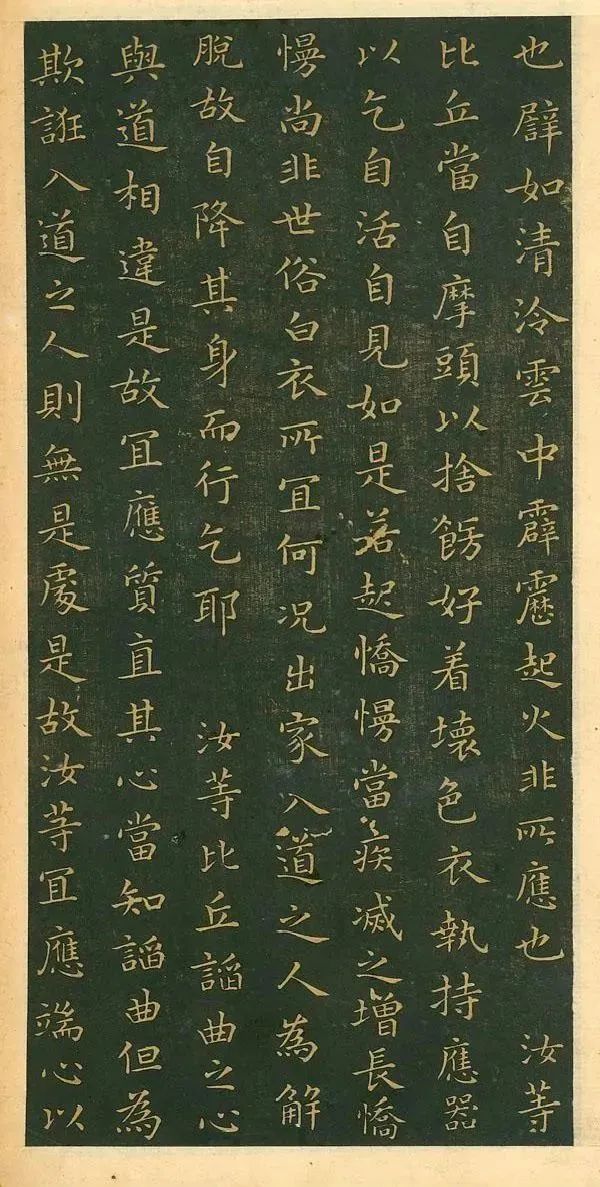 也譬如清泠雲中霹靂起火非所應也 汝等
比丘當自摩頭以捨餝好着壞色衣執持應器
以乞自活自見如是若起憍慢當疾滅之增長憍
慢尚非世俗白衣所冝何况出家入道之人為解
脫故自降其身而行乞耶 汝等比丘謟曲之心
與道相違是故冝應質直其心當知謟曲但為
欺誑入道之人則無是處是故汝等冝應端心以